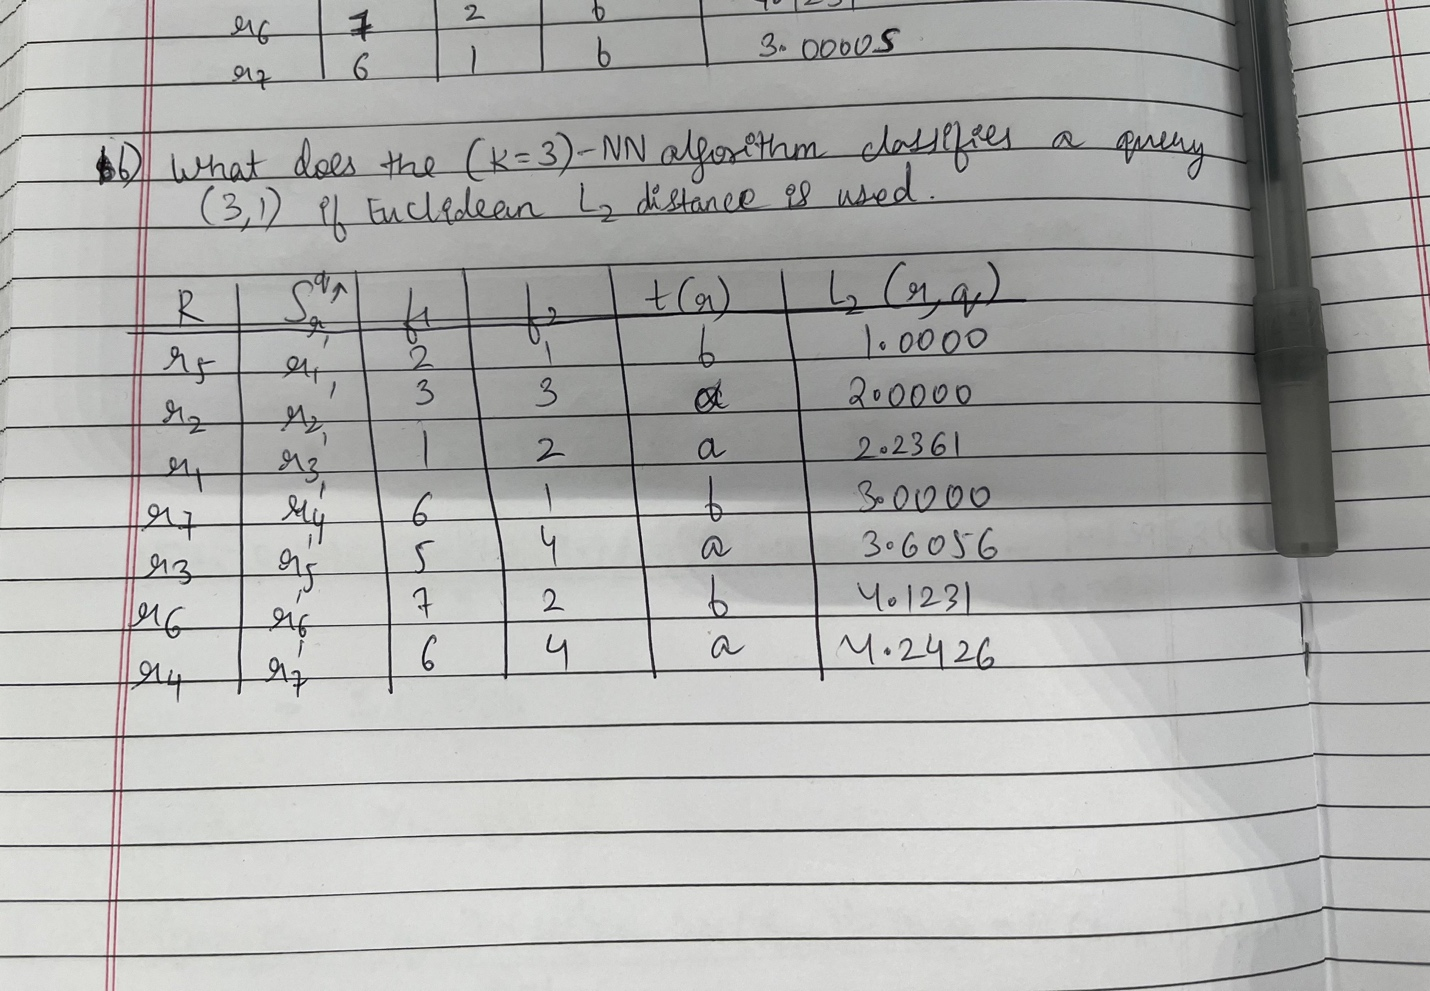 r6 7 2 b
r7 6 1 b 3.00005
b) What does the (K=3)-NN algorithm classifies a query
(3,1) if Euclidean L2 distance is used.
R f1 f2 t(r) L2 (r,q)
r5 r1' 2 1 b 1.0000
r2 r2' 3 3 a 2.0000
r1 r3' 1 2 a 2.2361
r7 r4' 6 1 b 3.0000
r3 r5' 5 4 a 3.6056
r6 r6' 7 2 b 4.1231
r4 r7' 6 4 a 4.2426